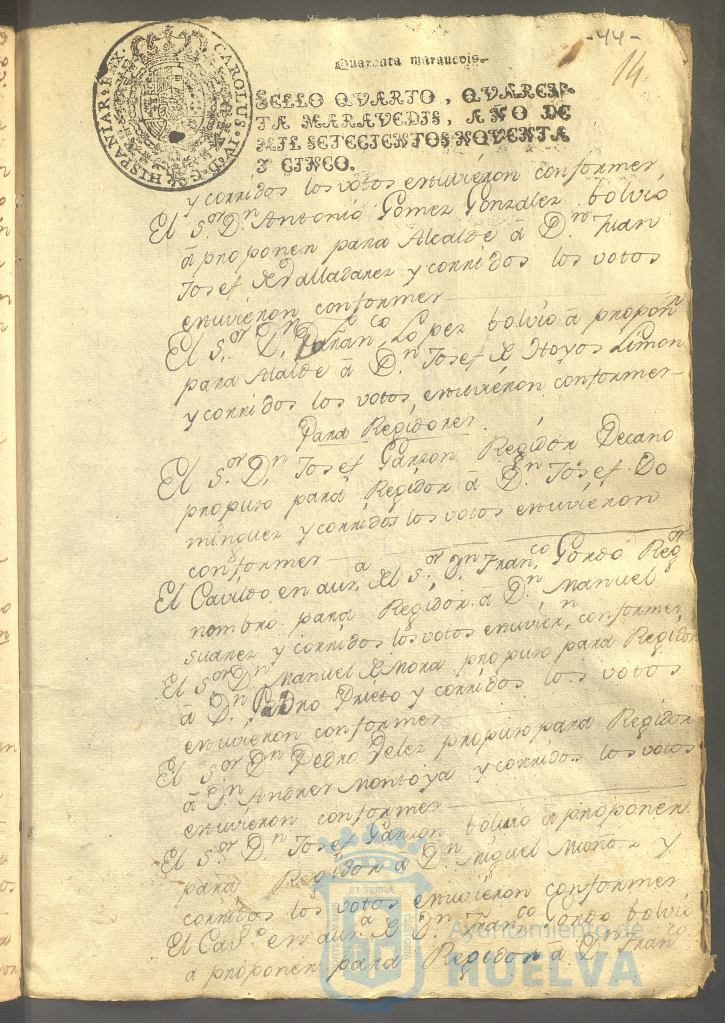 -44-
14
Quarenta maravedis.
CAROLUS IV D G HISPANIAR REX
SELLO QVARTO, QVAREN-
TA MARAVEDIS, AÑO DE
MIL SETECIENTOS NOVENTA
Y CINCO.
y corridos los votos estuvieron conformes
El S.or D.n Antonio Gomez Gonzalez bolvió
á proponer para Alcalde á D.n Juan
Josef de Valladares y corridos los votos
estuvieron conformes
El S.or D.n Fran.co Lopez bolvió á propon.r
para Alcalde á D.n Josef de Hoyos Limon
y corridos los votos, estuvieron conformes
Para Regidores.
El S.or D.n Josef Garzon Regidor Decano
propuso para Regidor á D.n Josef Do
minguez y corridos los votos estuvieron
conformes
El Cavildo en aus.a del S.or D.n Fran.co Gordo Reg.or
nombró para Regidor á D.n Manuel
Suarez y corridos los votos estuvier.n conformes
El S.or D.n Manuel de Mora propuso para Regidor
á D.n Pedro Prieto y corridos los votos
estuvieron conformes
El S.or D.n Pedro Velez propuso para Regidor
á D.n Andres Montoya y corridos los votos
estuvieron conformes
El S.or D.n Josef Garzon bolvió á proponer
para Regidor á D.n Miguel Muñoz y
corridos los votos estuvieron conformes
El Cav.do en aus.a de D.n Fran.co Gordo bolvió
a proponer para Regidor á D.n Fran.co
Ayuntamiento de
HUELVA